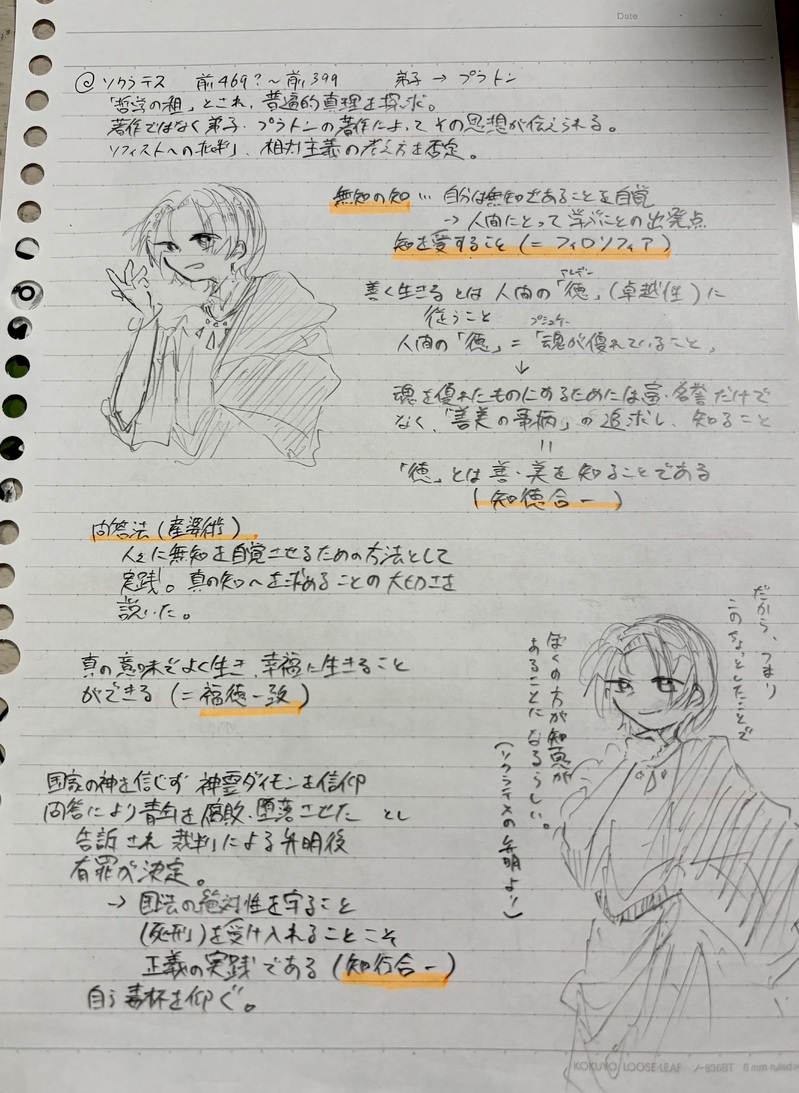 Date
@ ソクラテス 前469?～前399 弟子→プラトン
「哲学の祖」とされ、普遍的真理を探求。
著作ではなく弟子・プラトンの著作によってその思想が伝えられる。
ソフィストへの批判、相対主義の考え方を否定。
無知の知… 自分は無知であることを自覚
→ 人間にとって学ぶことの出発点
知を愛すること (= フィロソフィア)
アレテー
善く生きるとは 人間の「徳」(卓越性)に
従うこと
プシュケー
人間の「徳」=「魂が優れていること」
↓
魂を優れたものにするためには富・名誉だけで
なく、「善美の事柄」の追求し、知ること
=
「徳」とは善・美を知ることである
(知徳合一)
問答法(産婆術)
人々に無知を自覚させるための方法として
実践。真の知へを求めることの大切さを
説いた。
真の意味でよく生き、幸福に生きること
ができる (= 福徳一致)
だから、つまり
このちょっとしたことで
ぼくの方が知恵が
あることになるらしい。
(ソクラテスの弁明より)
国家の神を信じず 神霊ダイモンを信仰
問答により青年を腐敗・堕落させた とし
告訴され 裁判による弁明後
有罪が決定。
→ 国法の絶対性を守ること
(死刑)を受け入れることこそ
正義の実践である (知行合一)
自ら毒杯を仰ぐ。
KOKUYO LOOSE-LEAF ノ-836BT 6 mm ruled×